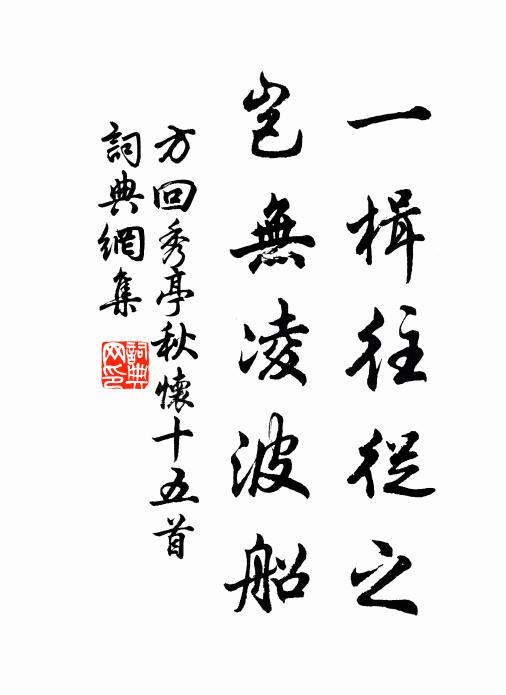 一楫往從之
豈無凌波船
方回秀亭秋懷十五首
詞典網集
詞典網印